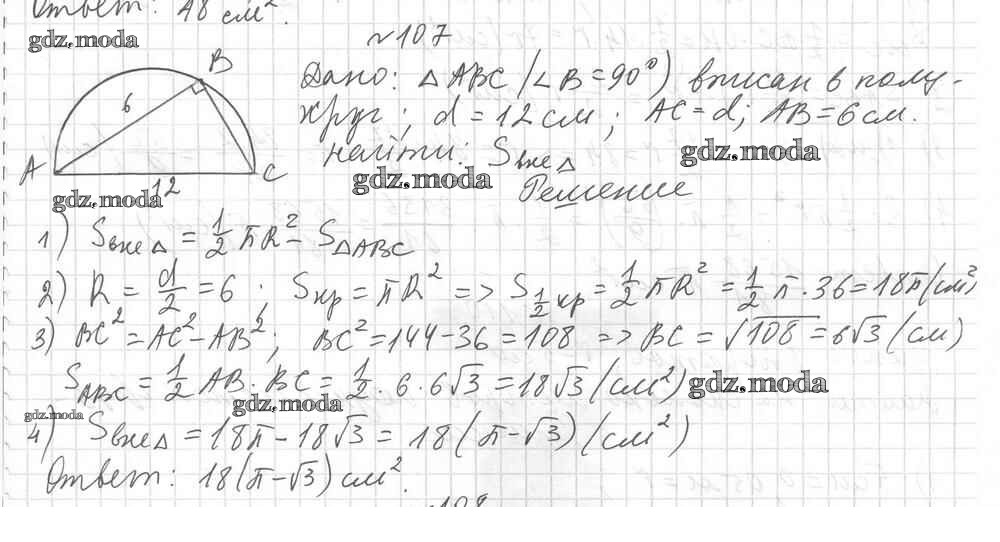 Ответ: 48 см².
gdz.moda
№107
B
Дано: △ABC (∠B=90°) вписан в полу-
6
круг; d=12см; AC=d; AB=6см.
найти: Sвне△
gdz.moda
A
C
gdz.moda
12
gdz.moda
Решение
1) Sвне△ = 1/2 πR² - S△ABC
2) R = d/2 = 6; Sкр = πR² => S1/2кр = 1/2 πR² = 1/2 π·36 = 18π(см²)
3) BC² = AC² - AB²; BC² = 144-36 = 108 => BC = √108 = 6√3 (см)
SABC = 1/2 AB·BC = 1/2 · 6 · 6√3 = 18√3 (см²)
gdz.moda
gdz.moda
gdz.moda
4) Sвне△ = 18π - 18√3 = 18(π-√3) (см²)
Ответ: 18(π-√3) см².
108